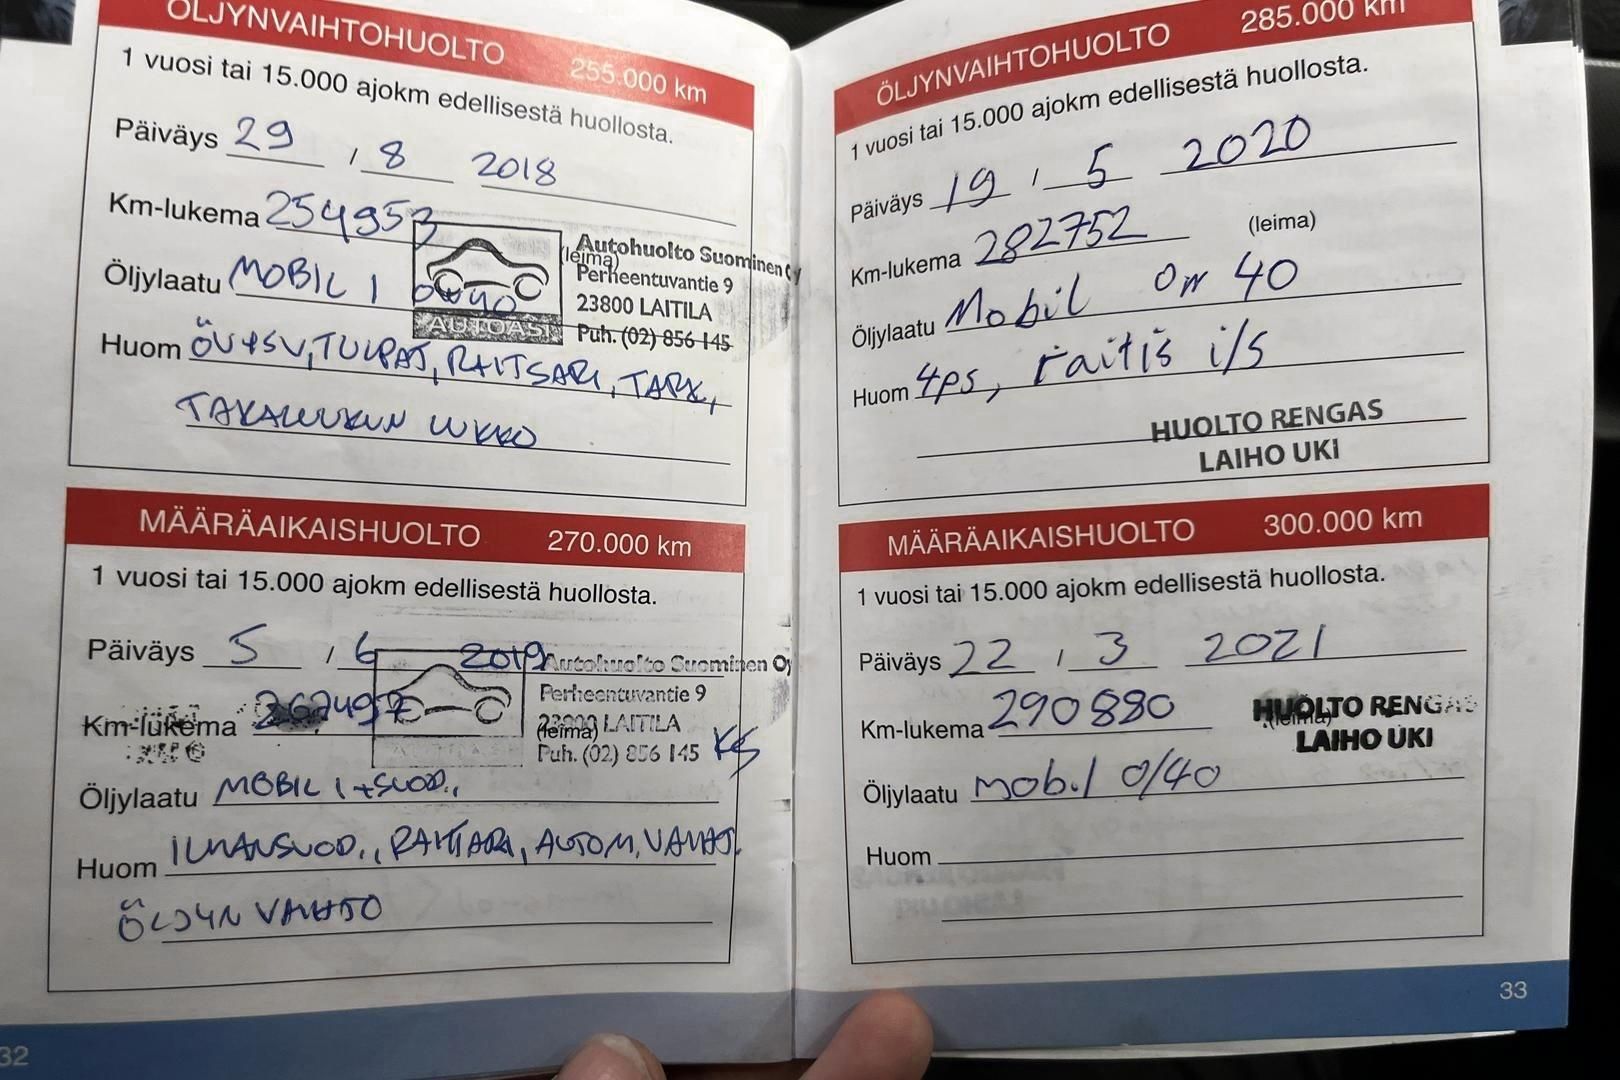 ÖLJYNVAIHTOHUOLTO 255.000 km
1 vuosi tai 15.000 ajokm edellisestä huollosta.
Päiväys 29 / 8 2018
Km-lukema 254953
(leima)
Autohuolto Suominen Oy
Perheentuvantie 9
23800 LAITILA
Puh. (02) 856 145
AUTOASI
Öljylaatu MOBIL 1 0W40
Huom ÖV+SV, TULPAT, RAITSARI, TARK,
TAKALUUKUN LUKKO
MÄÄRÄAIKAISHUOLTO 270.000 km
1 vuosi tai 15.000 ajokm edellisestä huollosta.
Päiväys 5 / 6 2019
Km-lukema
(leima)
Autohuolto Suominen Oy
Perheentuvantie 9
23800 LAITILA
Puh. (02) 856 145
KS
Öljylaatu MOBIL 1 + SUOD.,
Huom ILMANSUOD., RAITSARI, AUTOM. VAIHT.
ÖLJYN VAIHTO
32
ÖLJYNVAIHTOHUOLTO 285.000 km
1 vuosi tai 15.000 ajokm edellisestä huollosta.
Päiväys 19 / 5 2020
Km-lukema 282752 (leima)
Öljylaatu Mobil 0w 40
Huom 4ps, raitis i/s
HUOLTO RENGAS
LAIHO UKI
MÄÄRÄAIKAISHUOLTO 300.000 km
1 vuosi tai 15.000 ajokm edellisestä huollosta.
Päiväys 22 / 3 2021
Km-lukema 290880 (leima)
HUOLTO RENGAS
LAIHO UKI
Öljylaatu mobil 0/40
Huom
33